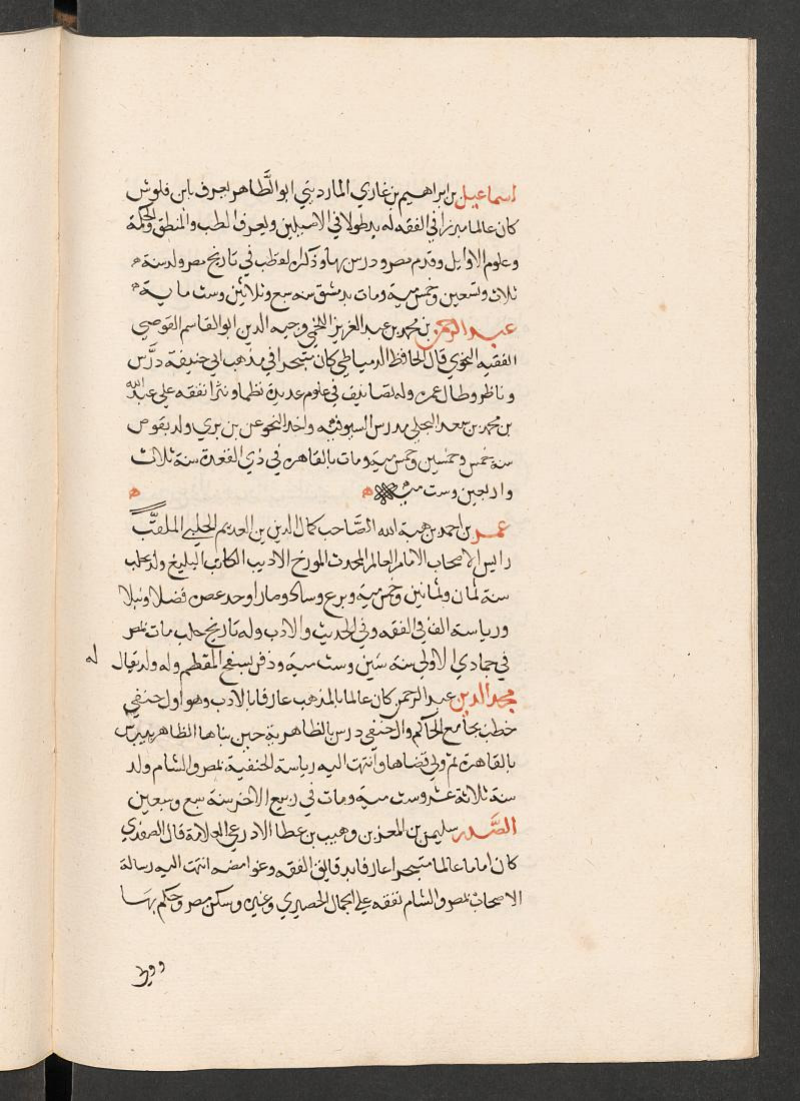 اسماعيل بن ابراهيم بن غازي المارديني ابو الطَّاهر يعرف بابن فلوس
كان عالما مبرزا في الفقه له يد طولا في الاصلين ويعرف الطب والمنطق والحكمة
وعلوم الاوايل وقدم مصر ودرس بها وذكره القطب في تاريخ مصر ولد سنة
ثلاث وتسعين وخمس مية ومات بدمشق سنه سبع وثلاثين وست ماية
عبد الرحمن بن محمد بن عبد العزيز اللخمي وجيه الدين ابو القاسم القوصي
الفقيه النحوي قال الحافظ الدمياطي كان متبحرا في مذهب ابي حنيفة درَّس
وناظر وطال عمره وله تصانيف في علوم عديدة نظما ونثرا تفقه علي عبد الله
بن محمد بن سعد البجلي مدرس السيوفيه واخذ النحو عن بن بري ولد بقوص
سنه خمس وخمسين وخمس مية ومات بالقاهره في ذي القعدة سنة ثلاث
واربعين وست مية
عمر بن احمد بن هبة الله الصَّاحب كمال الدين بن العديم الحلبي الملقَّب
رايس الاصحاب الامام العالم المحدث المورخ الاديب الكاتب البليغ ولد بحلب
سنة ثمان وثمانين وخمس مية وبرع وساد وصار اوحد عصره فضلا ونبلا
ورياسة الف في الفقه وفي الحديث والادب وله تاريخ حلب مات بمصر
في جمادي الاولي سنة ستين وست مية ودفن بسفح المقطم وله ولد يقال له
مجد الدين عبد الرحمن كان عالما بالمذهب عارفا بالادب وهو اول حنفي
خطب بجامع الحاكم واول حنفي درس بالظاهرية حين بناها الظاهر بيبرس
بالقاهرة ثم ولي قضاها وانتهت اليه رياسة الحنفية بمصر والشام ولد
سنة ثلاثة عشر وست مية ومات في ربيع الاخر سنة سبع وسبعين
الصَّدر سليمن بن ابي العز بن وهيب بن عطا الادرعي العلامة قال الصفدي
كان اماما عالما متبحرا عارفا بدقايق الفقه وغوامضه انتهت اليه رسالة
الاصحاب بمصر والشام تفقه علي الجمال الحصيري وغيره وسكن مصر وحكم بها
وولي